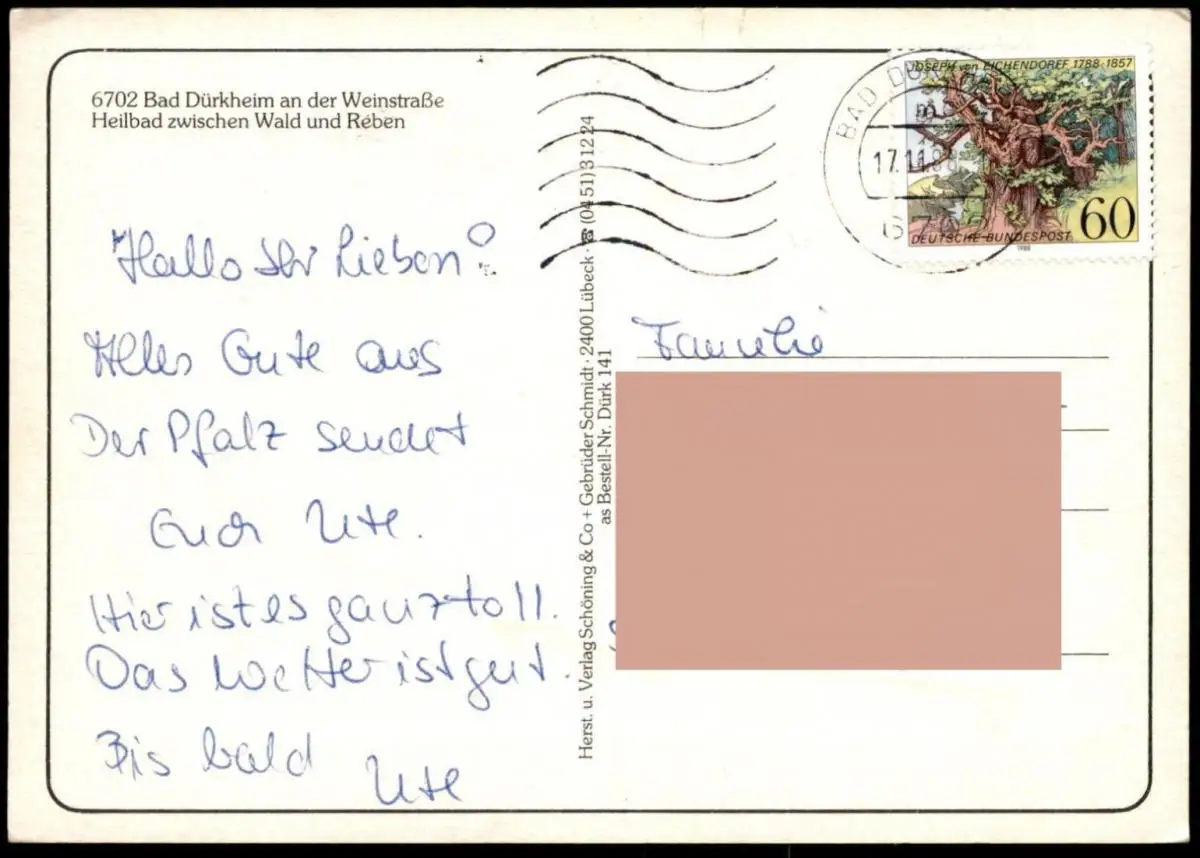 6702 Bad Dürkheim an der Weinstraße
Heilbad zwischen Wald und Reben
Hallo Ihr Lieben!
Alles Gute aus
Der Pfalz sendet
Euch Ute.
Hier ist es ganz toll.
Das Wetter ist gut.
Bis bald
Ute
Herst. u. Verlag Schöning & Co + Gebrüder Schmidt · 2400 Lübeck · ☎ (04 51) 3 12 24
as Bestell-Nr. Dürk 141
BAD DÜRK
17.11.88
JOSEPH von EICHENDORFF 1788-1857
60
DEUTSCHE BUNDESPOST
1988
Familie